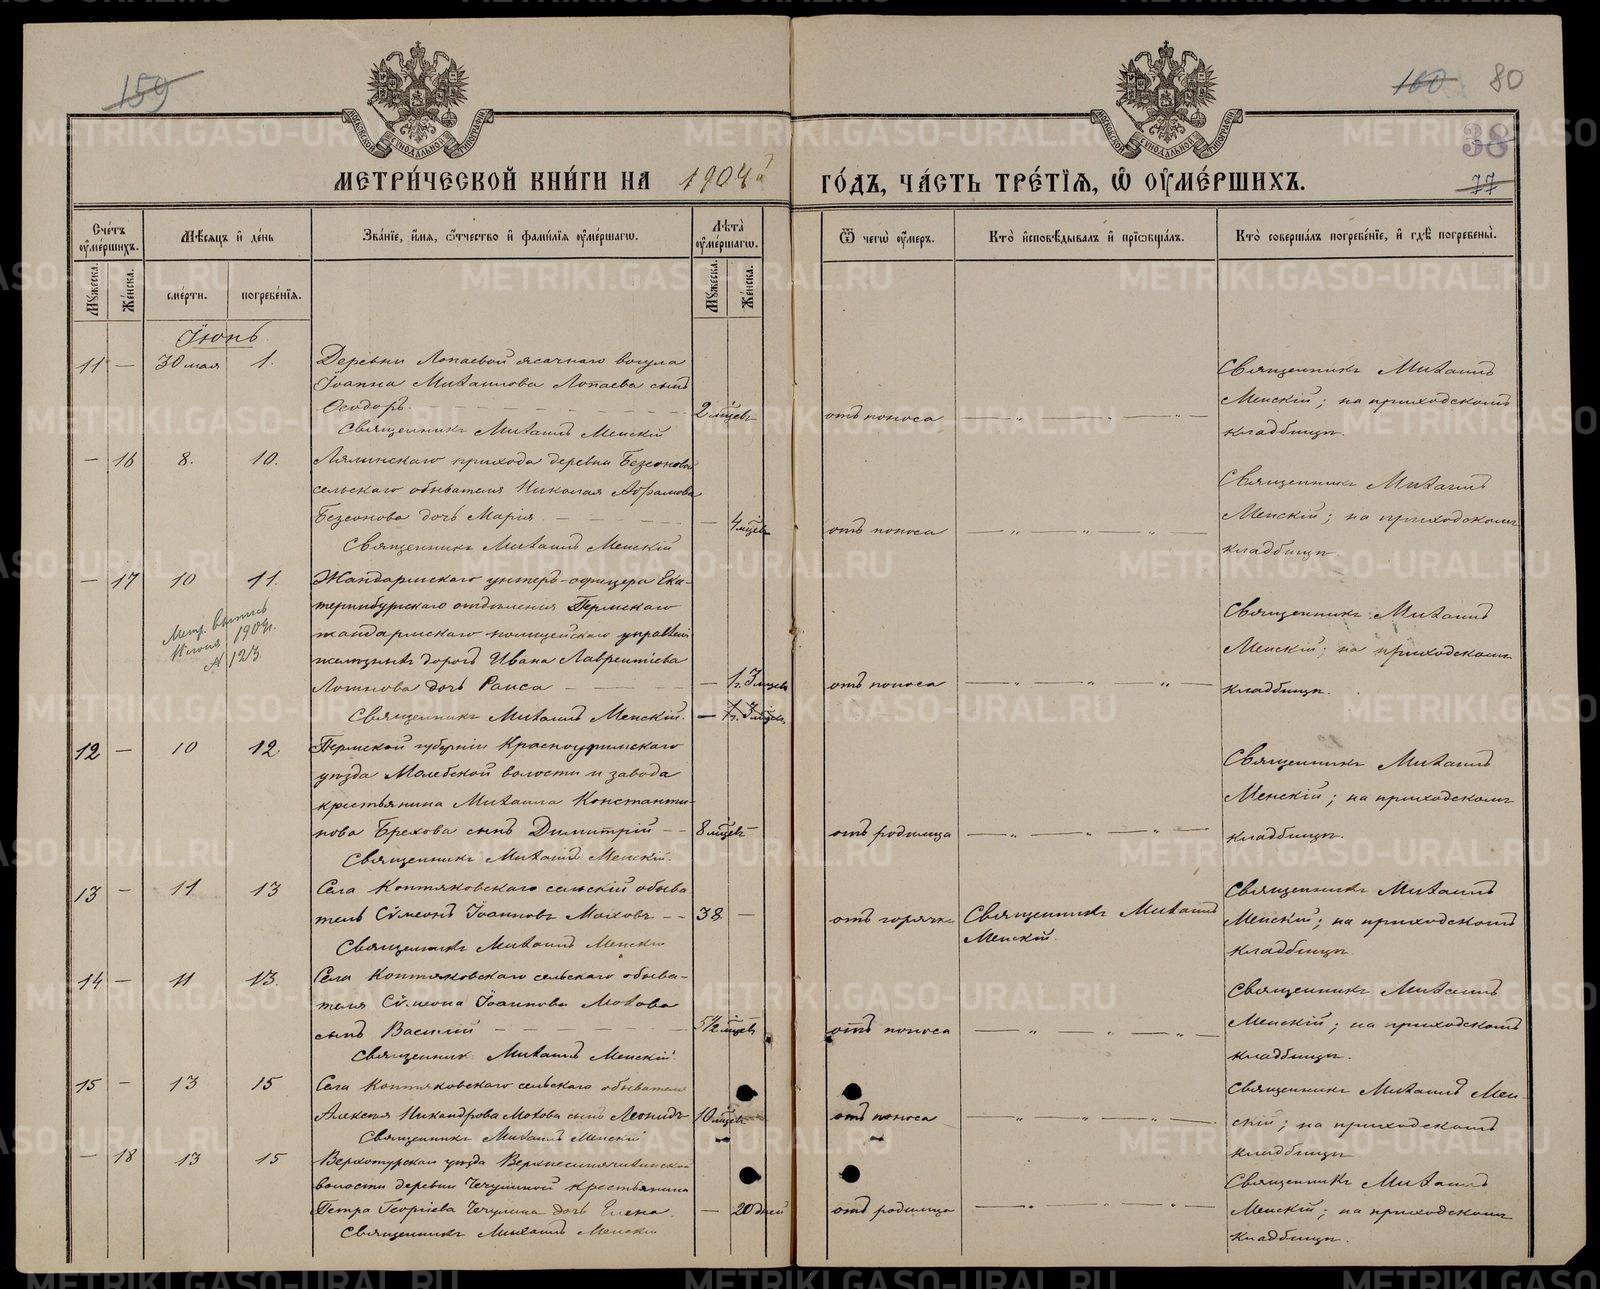 159
160
80
38
77
МОСКОВСКОЙ СѴНОДАЛЬНОЙ ТИПОГРАФІИ
МОСКОВСКОЙ СѴНОДАЛЬНОЙ ТИПОГРАФІИ
МЕТРИ́ЧЕСКОЙ КНИ́ГИ НА 1904й
ГО́ДЪ, ЧА́СТЬ ТРЕ́ТІѦ, Ѡ҃ ОУ҆МЕ́РШИХЪ.
Сче́тъ оу҆ме́ршихъ.
Мꙋ́жеска.
Же́нска.
Мѣ́сяцъ и҆ де́нь
сме́рти.
погребе́нїѧ.
Зва́нїе, и҆́мѧ, ѻ҆́тчество и҆ фами́лїѧ оу҆ме́ршагѡ.
Лѣ́та оу҆ме́ршагѡ.
Мꙋ́жеска.
Же́нска.
Ѿ чегѡ̀ оу҆́меръ.
Кто̀ и҆сповѣ́дывалъ и҆ прїѡбща́лъ.
Кто̀ соверша́лъ погребе́нїе, и҆ гдѣ̀ погребены̀.
Іюнь
11 — 30 мая 1.
Деревни Лопаевой ясачнаго вогула
Іоанна Михаилова Лопаева сынъ
Ѳеодоръ 2 мѣсец.
Священникъ Михаилъ Менскій
отъ поноса
Священникъ Михаилъ
Менскій; на приходскомъ
кладбищѣ.
— 16 8. 10.
Лялинскаго прихода деревни Безсоновой
сельскаго обывателя Николая Абрамова
Безсонова дочь Марія — 4 мѣсец.
Священникъ Михаилъ Менскій
отъ поноса
Священникъ Михаилъ
Менскій; на приходскомъ
кладбищѣ
— 17 10 11.
Метр. выпись
1909г.
№ 123.
Жандармскаго унтеръ-офицера Ека-
теринбургскаго отдѣленія Пермскаго
жандармскаго полицейскаго управленія
желѣзныхъ дорогъ Ивана Лаврентіева
Логинова дочь Раиса — 1г. 3 мѣсец.
Священникъ Михаилъ Менскій. — 1г. 3 мѣсец.
отъ поноса
Священникъ Михаилъ
Менскій; на приходскомъ
кладбищѣ.
12 — 10 12.
Пермской губерніи Красноуфимскаго
уѣзда Молебской волости и завода
крестьянина Михаила Константи-
нова Брехова сынъ Димитрій 8 мѣсец. —
Священникъ Михаилъ Менскій.
отъ родимца
Священникъ Михаилъ
Менскій; на приходскомъ
кладбищѣ.
13 — 11 13
Села Коптяковскаго сельскій обыва
тель Сѵмеонъ Іоанновъ Моховъ 38 —
Священникъ Михаилъ Менскій
отъ горячки
Священникъ Михаилъ
Менскій.
Священникъ Михаилъ
Менскій; на приходскомъ
кладбищѣ.
14 — 11 13.
Села Коптяковскаго сельскаго обыва-
теля Сѵмеона Іоаннова Мохова
сынъ Василій 5½ мѣсец.
Священник Михаилъ Менскій.
отъ поноса
Священникъ Михаилъ
Менскій; на приходскомъ
кладбищѣ.
15 — 13 15
Села Коптяковскаго сельскаго обывателя
Алексѣя Никандрова Мохова сынъ Леонидъ 10 мѣсец.
Священникъ Михаилъ Менскій
отъ поноса
Священникъ Михаилъ Мен-
скій; на приходскомъ
кладбищѣ
— 18 13 15
Верхотурскаго уѣзда
волости деревни крестьянина
Петра Георгіева дочь Елена — 20 дней
Священникъ Михаилъ Менскій
отъ родимца
Священникъ Михаилъ
Менскій; на приходскомъ
кладбищѣ.
METRIKI.GASO-URAL.RU